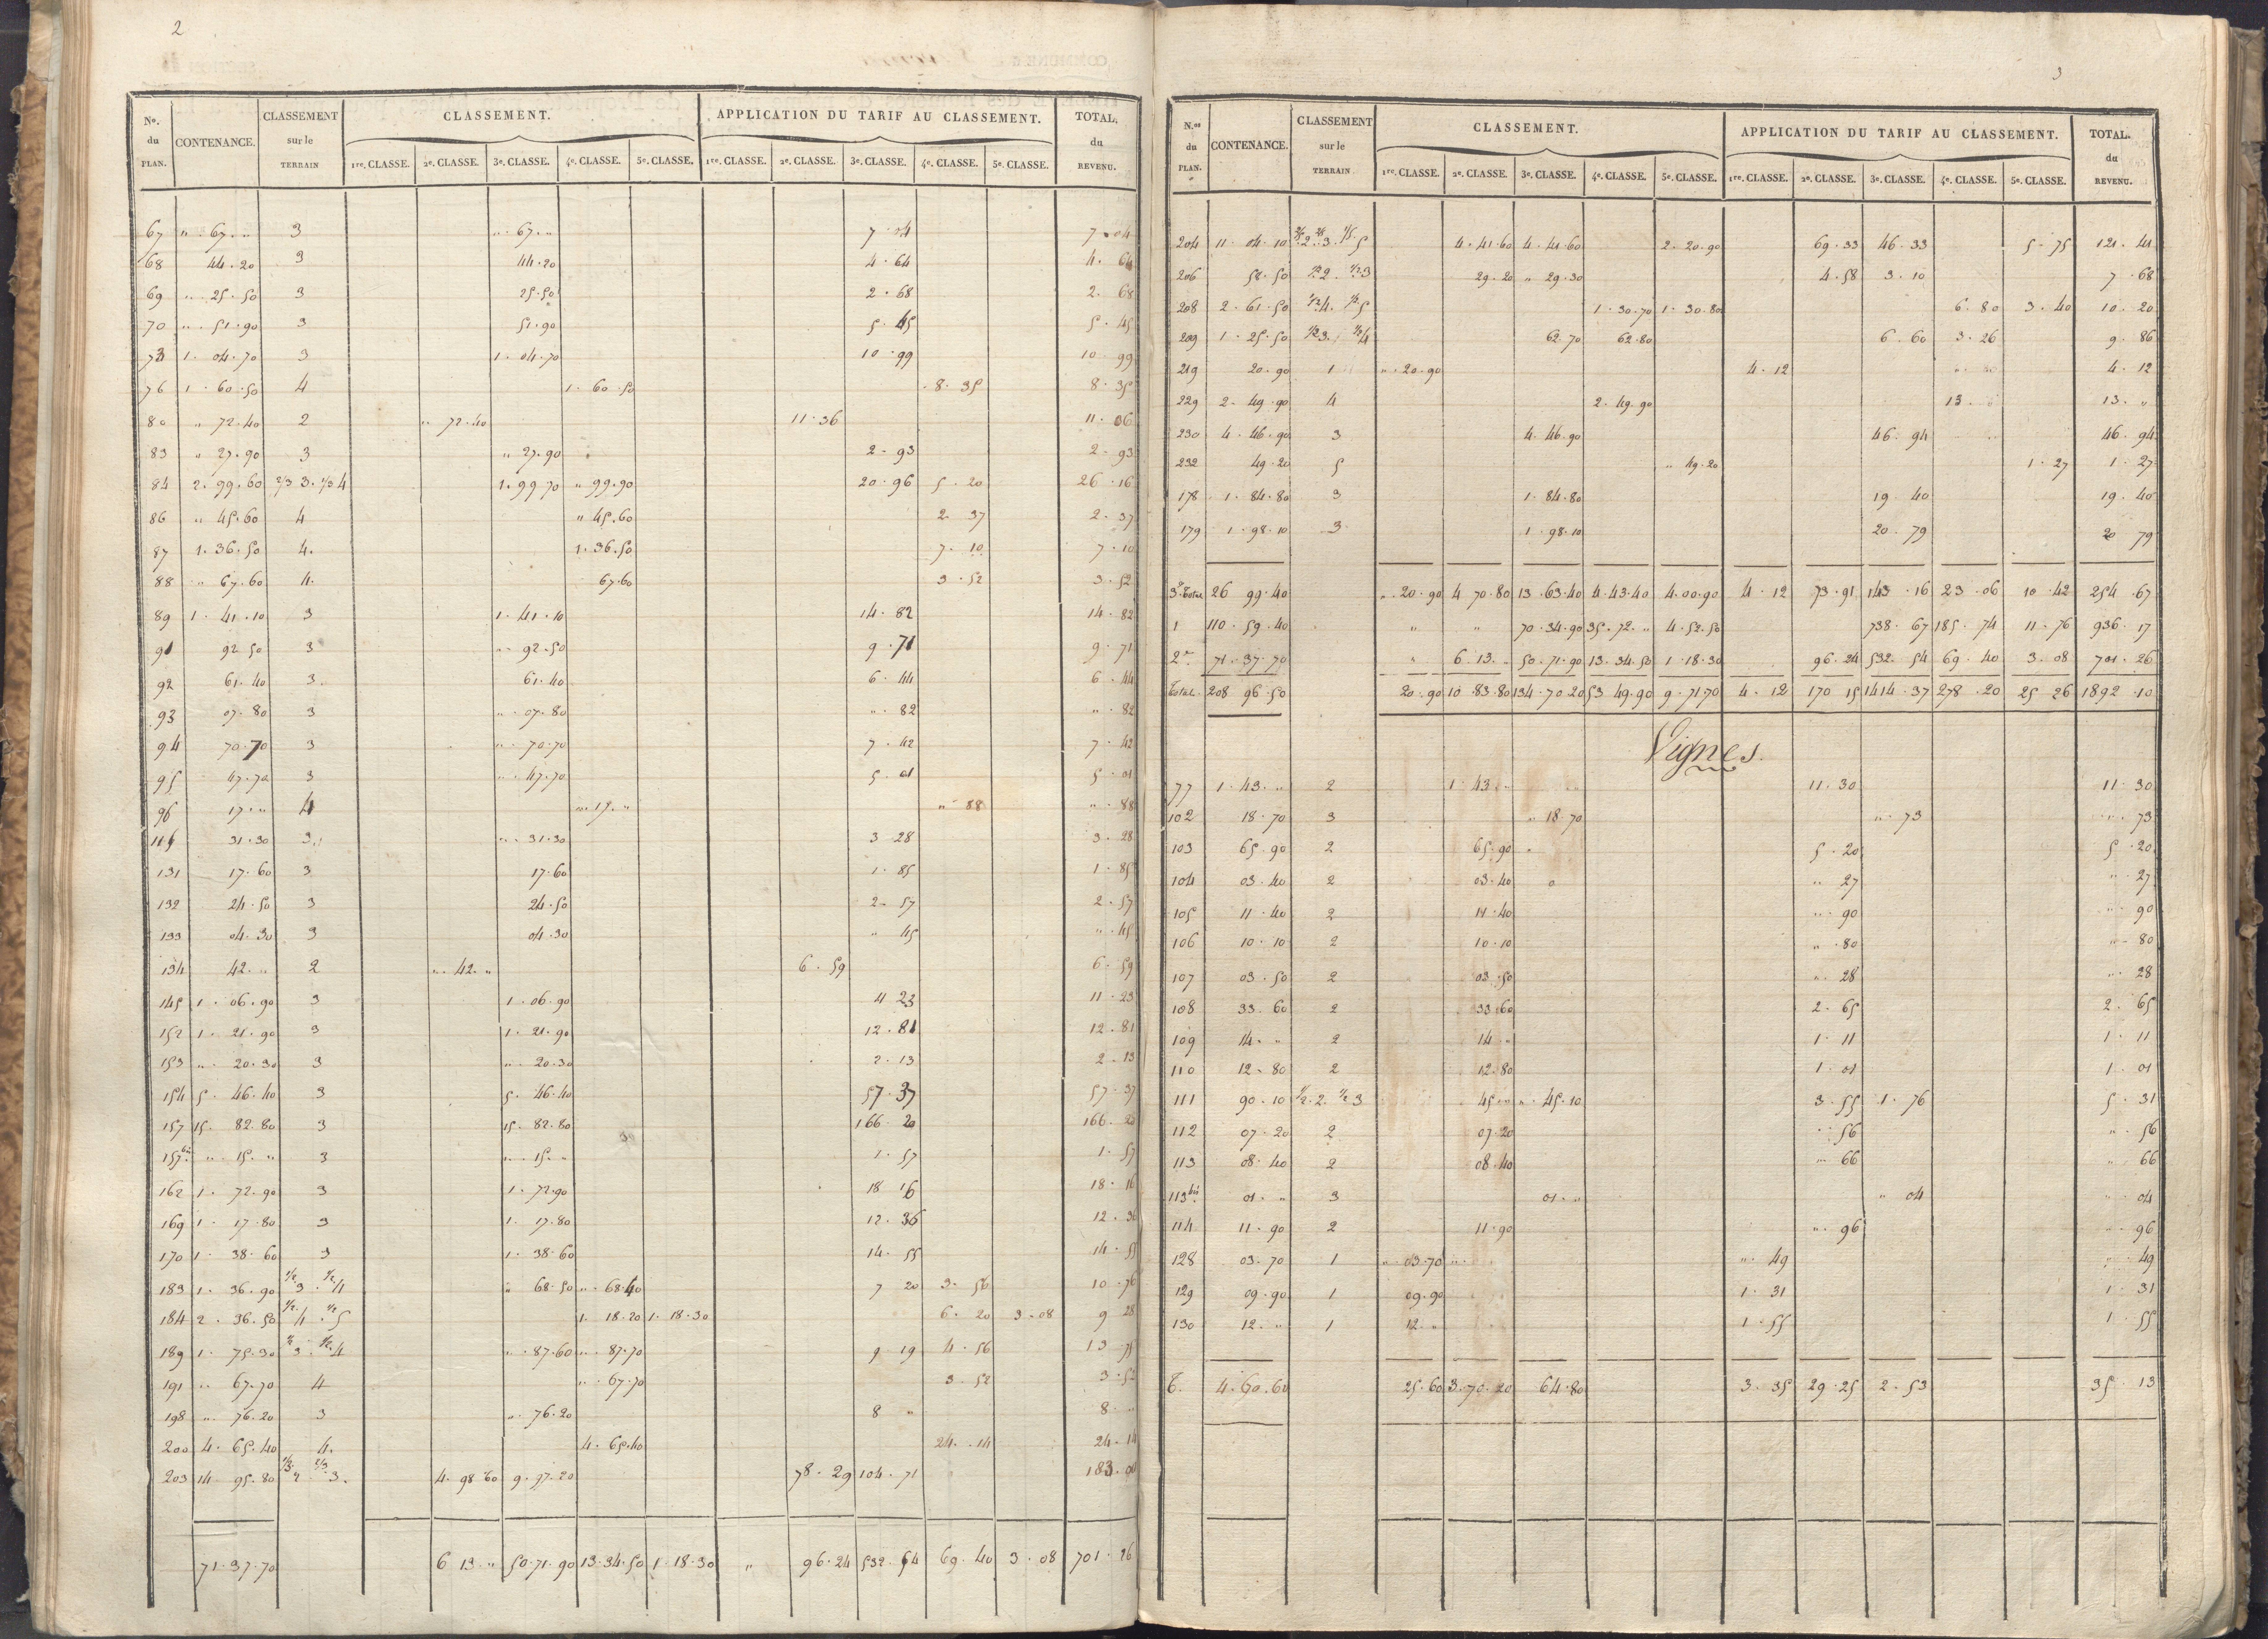 2
No. du PLAN. CONTENANCE. CLASSEMENT sur le TERRAIN CLASSEMENT. APPLICATION DU TARIF AU CLASSEMENT. TOTAL. du REVENU.
1re. CLASSE. 2e. CLASSE. 3e. CLASSE. 4e. CLASSE. 5e. CLASSE. 1re. CLASSE. 2e. CLASSE. 3e. CLASSE. 4e. CLASSE. 5e. CLASSE.
67 " . 67 . " 3 " . 67 . " 7 . 04 7 . 04
68 44 . 20 3 44 . 20 4 . 64 4 . 64
69 " . 25 . 50 3 25 . 50 2 . 68 2 . 68
70 " . 51 . 90 3 51 . 90 5 . 45 5 . 45
73 1 . 04 . 70 3 1 . 04 . 70 10 . 99 10 . 99
76 1 . 60 . 50 4 1 . 60 . 50 8 . 35 8 . 35
80 " 72 . 40 2 " . 72 . 40 11 . 36 11 . 36
83 " 27 . 90 3 " 27 . 90 2 . 93 2 . 93
84 2 . 99 . 60 2/3 3 . 1/3 4 1 . 99 70 " 99 . 90 20 . 96 5 . 20 26 . 16
86 " 45 . 60 4 " 45 . 60 2 . 37 2 . 37
87 1 . 36 . 50 4 . 1 . 36 . 50 7 . 10 7 . 10
88 " 67 . 60 4 . 67 . 60 3 . 52 3 . 52
89 1 . 41 . 10 3 1 . 41 . 10 14 . 82 14 . 82
91 92 50 3 " . 92 . 50 9 . 71 9 . 71
92 61 . 40 3 . 61 . 40 6 . 44 6 . 44
93 07 . 80 3 " . 07 . 80 " . 82 " . 82
94 70 . 70 3 " . 70 . 70 7 . 42 7 . 42
95 47 . 70 3 " . 47 . 70 5 . 01 5 . 01
96 17 . " 4 " . 17 . " " 88 " . 88
31 . 30 3 " . 31 . 30 3 28 3 . 28
131 17 . 60 3 17 . 60 1 . 85 1 . 85
132 24 . 50 3 24 . 50 2 . 57 2 . 57
133 04 . 30 3 04 . 30 " 45 " . 45
134 42 . " 2 " . 42 . " 6 . 59 6 . 59
145 1 . 06 . 90 3 1 . 06 . 90 11 23 11 . 23
152 1 . 21 . 90 3 1 . 21 . 90 12 . 81 12 . 81
153 " . 20 . 30 3 " . 20 . 30 2 . 13 2 . 13
154 5 . 46 . 40 3 5 . 46 . 40 57 . 37 57 . 37
157 15 . 82 . 80 3 15 . 82 . 80 166 . 20 166 . 20
157 bis " . 15 . " 3 " . 15 . " 1 . 57 1 . 57
162 1 . 72 . 90 3 1 . 72 . 90 18 16 18 . 16
169 1 . 17 . 80 3 1 . 17 . 80 12 . 36 12 . 36
170 1 . 38 . 60 3 1 . 38 . 60 14 . 55 14 . 55
183 1 . 36 . 90 1/2 3 . 1/2 4 " 68 . 50 " . 68 . 40 7 20 3 . 56 10 . 76
184 2 . 36 . 50 1/2 4 . 1/2 5 1 . 18 . 20 1 . 18 . 30 6 . 20 3 . 08 9 28
189 1 . 75 . 30 1/2 3 . 1/2 4 " . 87 . 60 " . 87 . 70 9 19 4 . 56 13 75
191 " . 67 . 70 4 " . 67 . 70 3 . 52 3 . 52
198 " . 76 . 20 3 " . 76 . 20 8 " 8 . "
200 4 . 65 . 40 4 . 4 . 65 . 40 24 . 14 24 . 14
203 14 . 95 . 80 1/3 2 . 2/3 3 . 4 . 98 60 9 . 97 . 20 78 . 29 104 . 71 183 . 00
71 . 37 . 70 6 13 . " 50 . 71 . 90 13 . 34 . 50 1 . 18 . 30 " 96 . 24 532 . 54 69 . 40 3 . 08 701 . 26
3
N.os du PLAN. CONTENANCE. CLASSEMENT sur le TERRAIN CLASSEMENT. APPLICATION DU TARIF AU CLASSEMENT. TOTAL. du REVENU.
1re. CLASSE. 2e. CLASSE. 3e. CLASSE. 4e. CLASSE. 5e. CLASSE. 1re. CLASSE. 2e. CLASSE. 3e. CLASSE. 4e. CLASSE. 5e. CLASSE.
204 11 . 04 . 10 2/5 2 . 2/5 3 . 1/5 5 4 . 41 . 60 4 . 41 . 60 2 . 20 . 90 69 . 33 46 . 33 5 . 75 121 . 41
206 58 . 50 1/2 2 . 1/2 3 29 . 20 " 29 . 30 4 . 58 3 . 10 7 . 68
208 2 . 61 . 50 1/2 4 . 1/2 5 1 . 30 . 70 1 . 30 . 80 6 . 80 3 . 40 10 . 20
209 1 . 25 . 50 1/2 3 . 1/2 4 62 . 70 62 . 80 6 . 60 3 . 26 9 . 86
219 20 . 90 1 " . 20 . 90 4 . 12 4 . 12
229 2 . 49 . 90 4 2 . 49 . 90 13 . " 13 . "
230 4 . 46 . 90 3 4 . 46 . 90 46 . 94 46 . 94
232 49 . 20 5 " 49 . 20 1 . 27 1 . 27
178 1 . 84 . 80 3 1 . 84 . 80 19 . 40 19 . 40
179 1 . 98 . 10 3 1 . 98 . 10 20 . 79 20 79
3e Total 26 99 . 40 " . 20 . 90 4 70 . 80 13 . 63 . 40 4 . 43 . 40 4 . 00 . 90 4 . 12 73 . 91 143 . 16 23 . 06 10 . 42 254 . 67
1 110 . 59 . 40 " " 70 . 34 . 90 35 . 72 . " 4 . 52 . 50 738 . 67 185 . 74 11 . 76 936 . 17
2e 71 . 37 . 70 " 6 . 13 . " 50 . 71 . 90 13 . 34 . 50 1 . 18 . 30 96 . 24 532 . 54 69 . 40 3 . 08 701 . 26
Total 208 96 . 50 20 . 90 10 . 83 . 80 134 . 70 20 53 49 . 90 9 . 71 70 4 . 12 170 15 1414 . 37 278 . 20 25 26 1892 . 10
Vignes.
77 1 . 43 . " 2 1 . 43 . " 11 . 30 11 . 30
102 18 . 70 3 " 18 . 70 " . 73 " . 73
103 65 . 90 2 65 . 90 5 . 20 5 . 20
104 03 . 40 2 03 . 40 " 27 " . 27
105 11 . 40 2 11 . 40 " . 90 " . 90
106 10 . 10 2 10 . 10 " . 80 " . 80
107 03 . 50 2 03 . 50 " . 28 " . 28
108 33 . 60 2 33 . 60 2 . 65 2 . 65
109 14 . " 2 14 " 1 . 11 1 . 11
110 12 . 80 2 12 . 80 1 . 01 1 . 01
111 90 . 10 1/2 . 2 . 1/2 3 45 . " " . 45 . 10 3 . 55 1 . 76 5 . 31
112 07 . 20 2 07 . 20 " 56 " . 56
113 08 . 40 2 08 . 40 " 66 " 66
113 bis 01 . " 3 01 . " " 04 " . 04
114 11 . 90 2 11 . 90 " . 96 " . 96
128 03 . 70 1 " . 03 . 70 " . 49 " . 49
129 09 . 90 1 09 . 90 1 . 31 1 . 31
130 12 . " 1 12 . " 1 . 55 1 . 55
T. 4 . 60 . 60 25 . 60 3 . 70 . 20 64 . 80 3 . 35 29 . 25 2 . 53 35 . 13